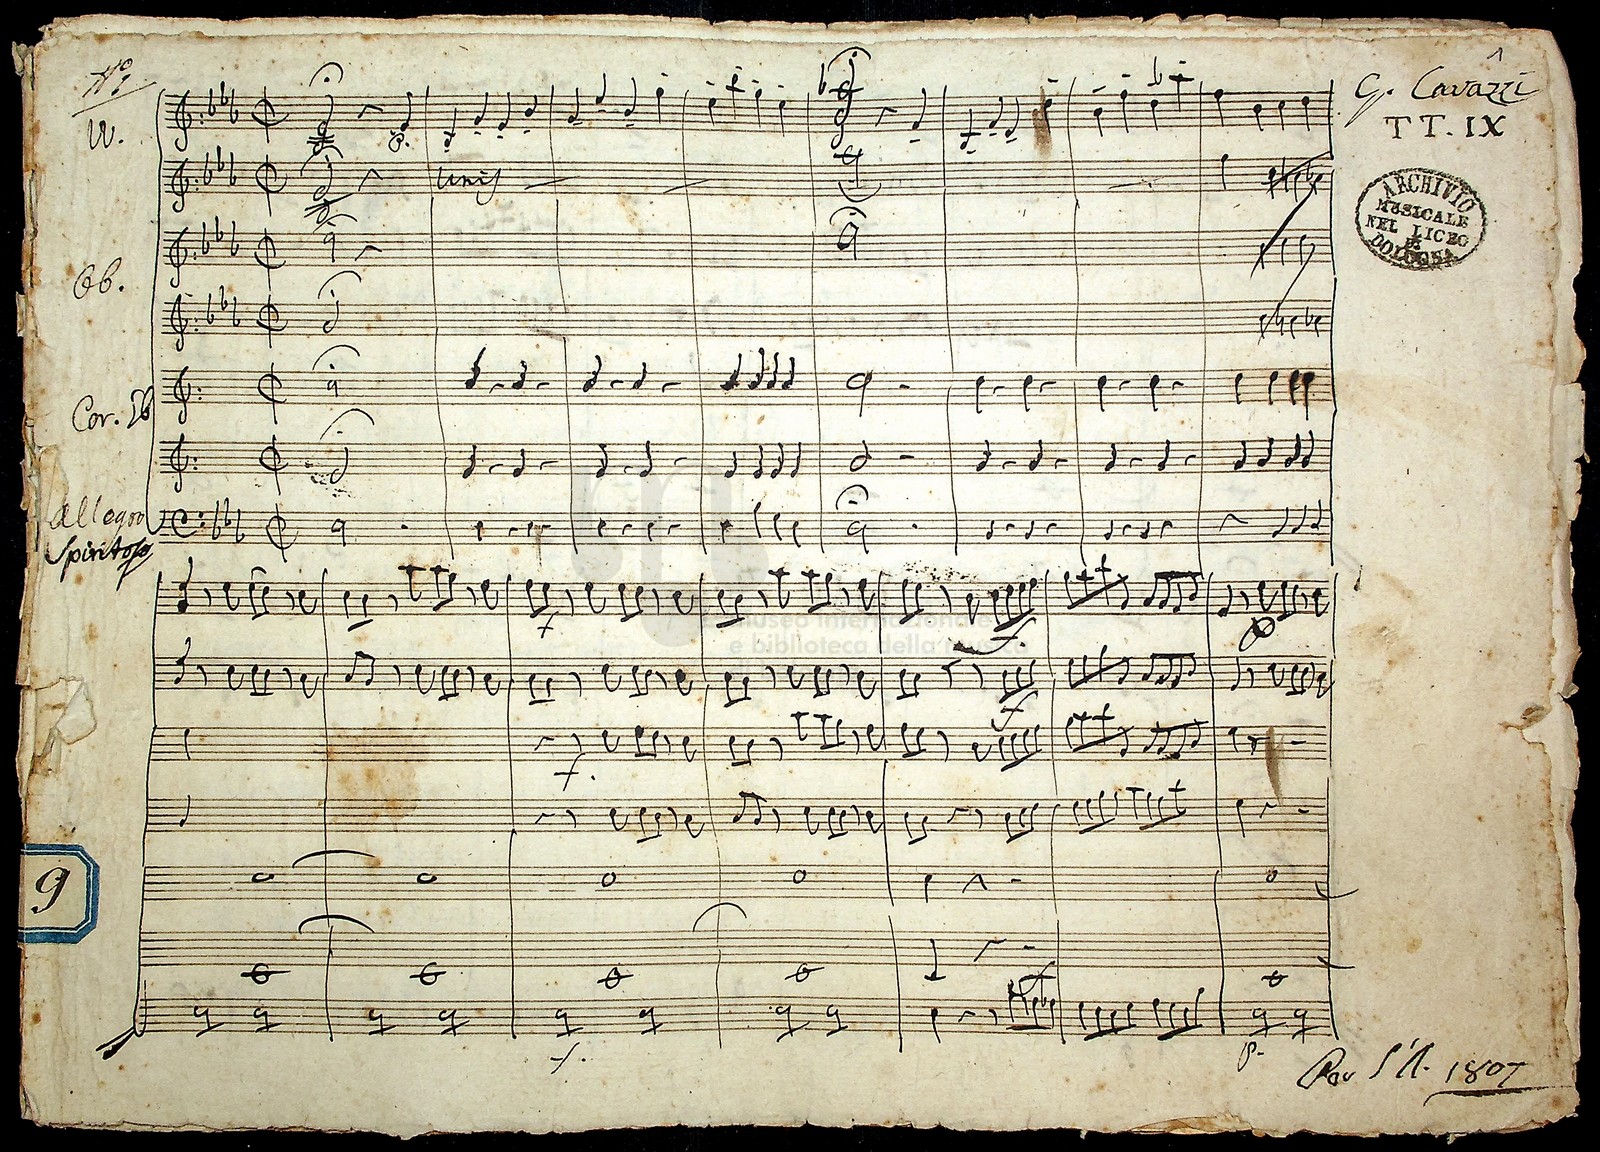 Nº 1
G. Cavazzi
TT. IX
ARCHIVIO
MUSICALE
NEL LICEO
DI
BOLOGNA
Unis
Ob.
Cor.
Allegro
Spiritoso
museo internazionale
e biblioteca della musica
f
f
f
f.
9
f.
p.
Per l'A. 1807